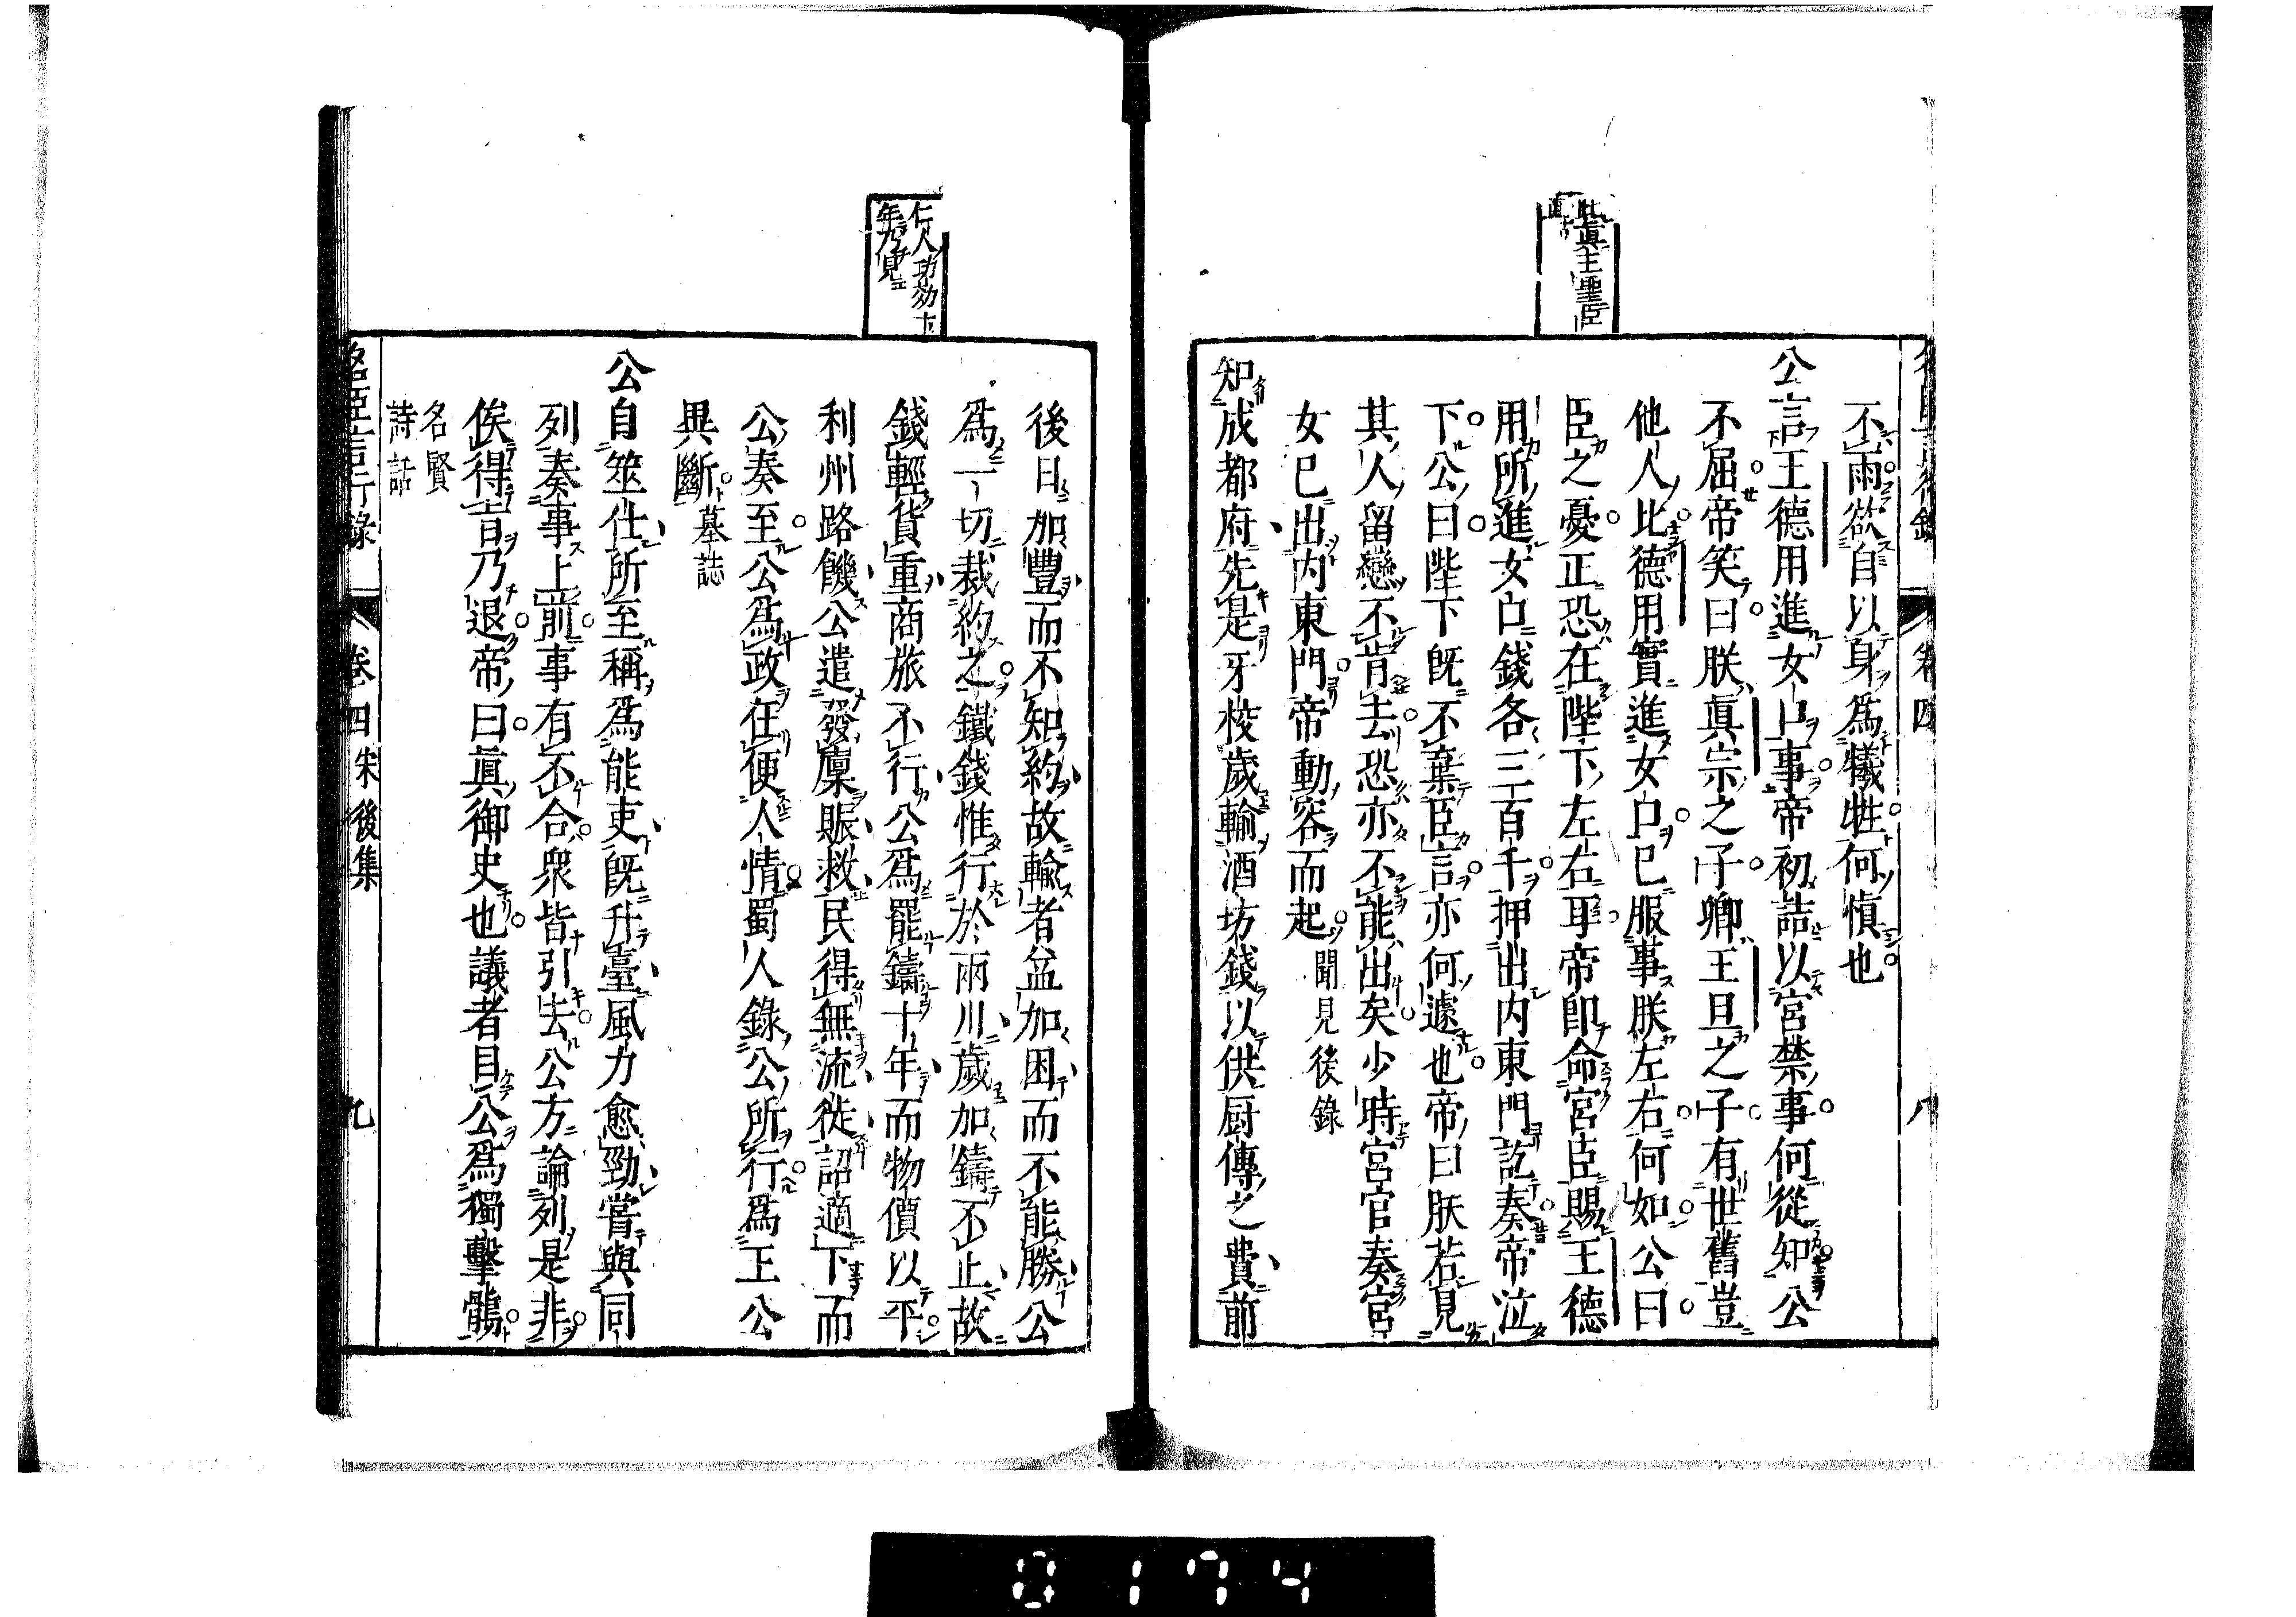 此真主聖臣
不雨欲自以身爲犧牲何愼也
公言王德用進女口事帝初詰以宮禁事何從知公
不屈帝笑曰朕眞宗之子卿王旦之子有世舊豈
他人比德用實進女口已服事朕左右何如公曰
臣之憂正恐在陛下左右耳帝卽命宮臣賜王德
用所進女口錢各三百千押出内東門訖奏帝泣
下公曰陛下旣不棄臣言亦何遽也帝曰朕若見
其人留戀不肯去恐亦不能出矣少時宮官奏宮
女已出内東門帝動容而起聞見後錄
知成都府先是牙校歲輸酒坊錢以供厨傳之費前
名臣言行錄 卷四 八
仁人功効十
年乃見
後日加豐而不知約故輸者益加困而不能勝公
爲一切裁約之鐵錢惟行於兩川歲加鑄不止故
錢輕貨重商旅不行公爲罷鑄十年而物價以平
利州路饑公遣發廩賑救民得無流徙詔適下而
公奏至公爲政在便人情蜀人錄公所行爲王公
異斷墓誌
公自筮仕所至稱爲能吏旣升臺風力愈勁嘗與同
列奏事上前事有不合衆皆引去公方論列是非
俟得旨乃退帝曰眞御史也議者目公爲獨擊鶻
名賢
詩話
名臣言行錄 卷四 宋後集 九
0174